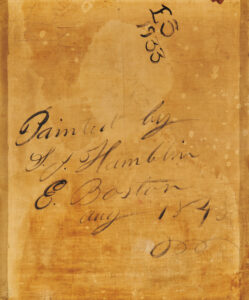 15
1933
Painted by
S. J. Hamblin
E. Boston
Aug 1848